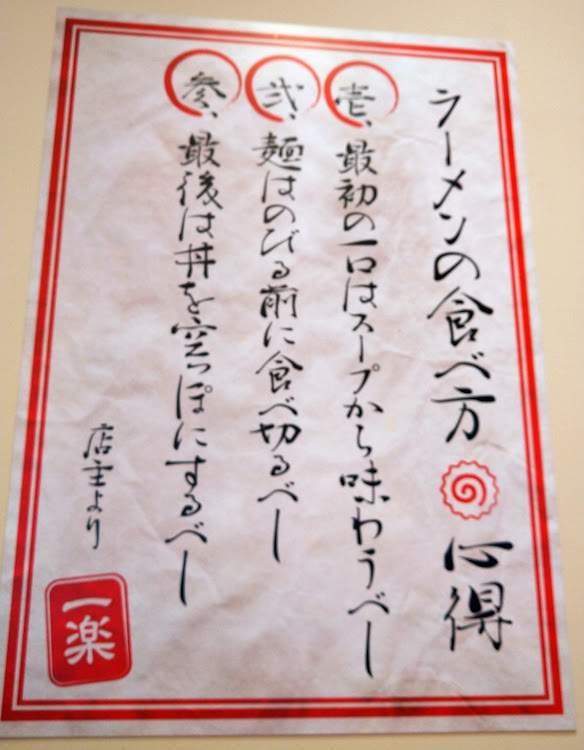 ラーメンの食べ方 心得
壱、最初の一口はスープから味わうべし
弐、麺はのびる前に食べ切るべし
参、最後は丼を空っぽにするべし
店主より
一楽